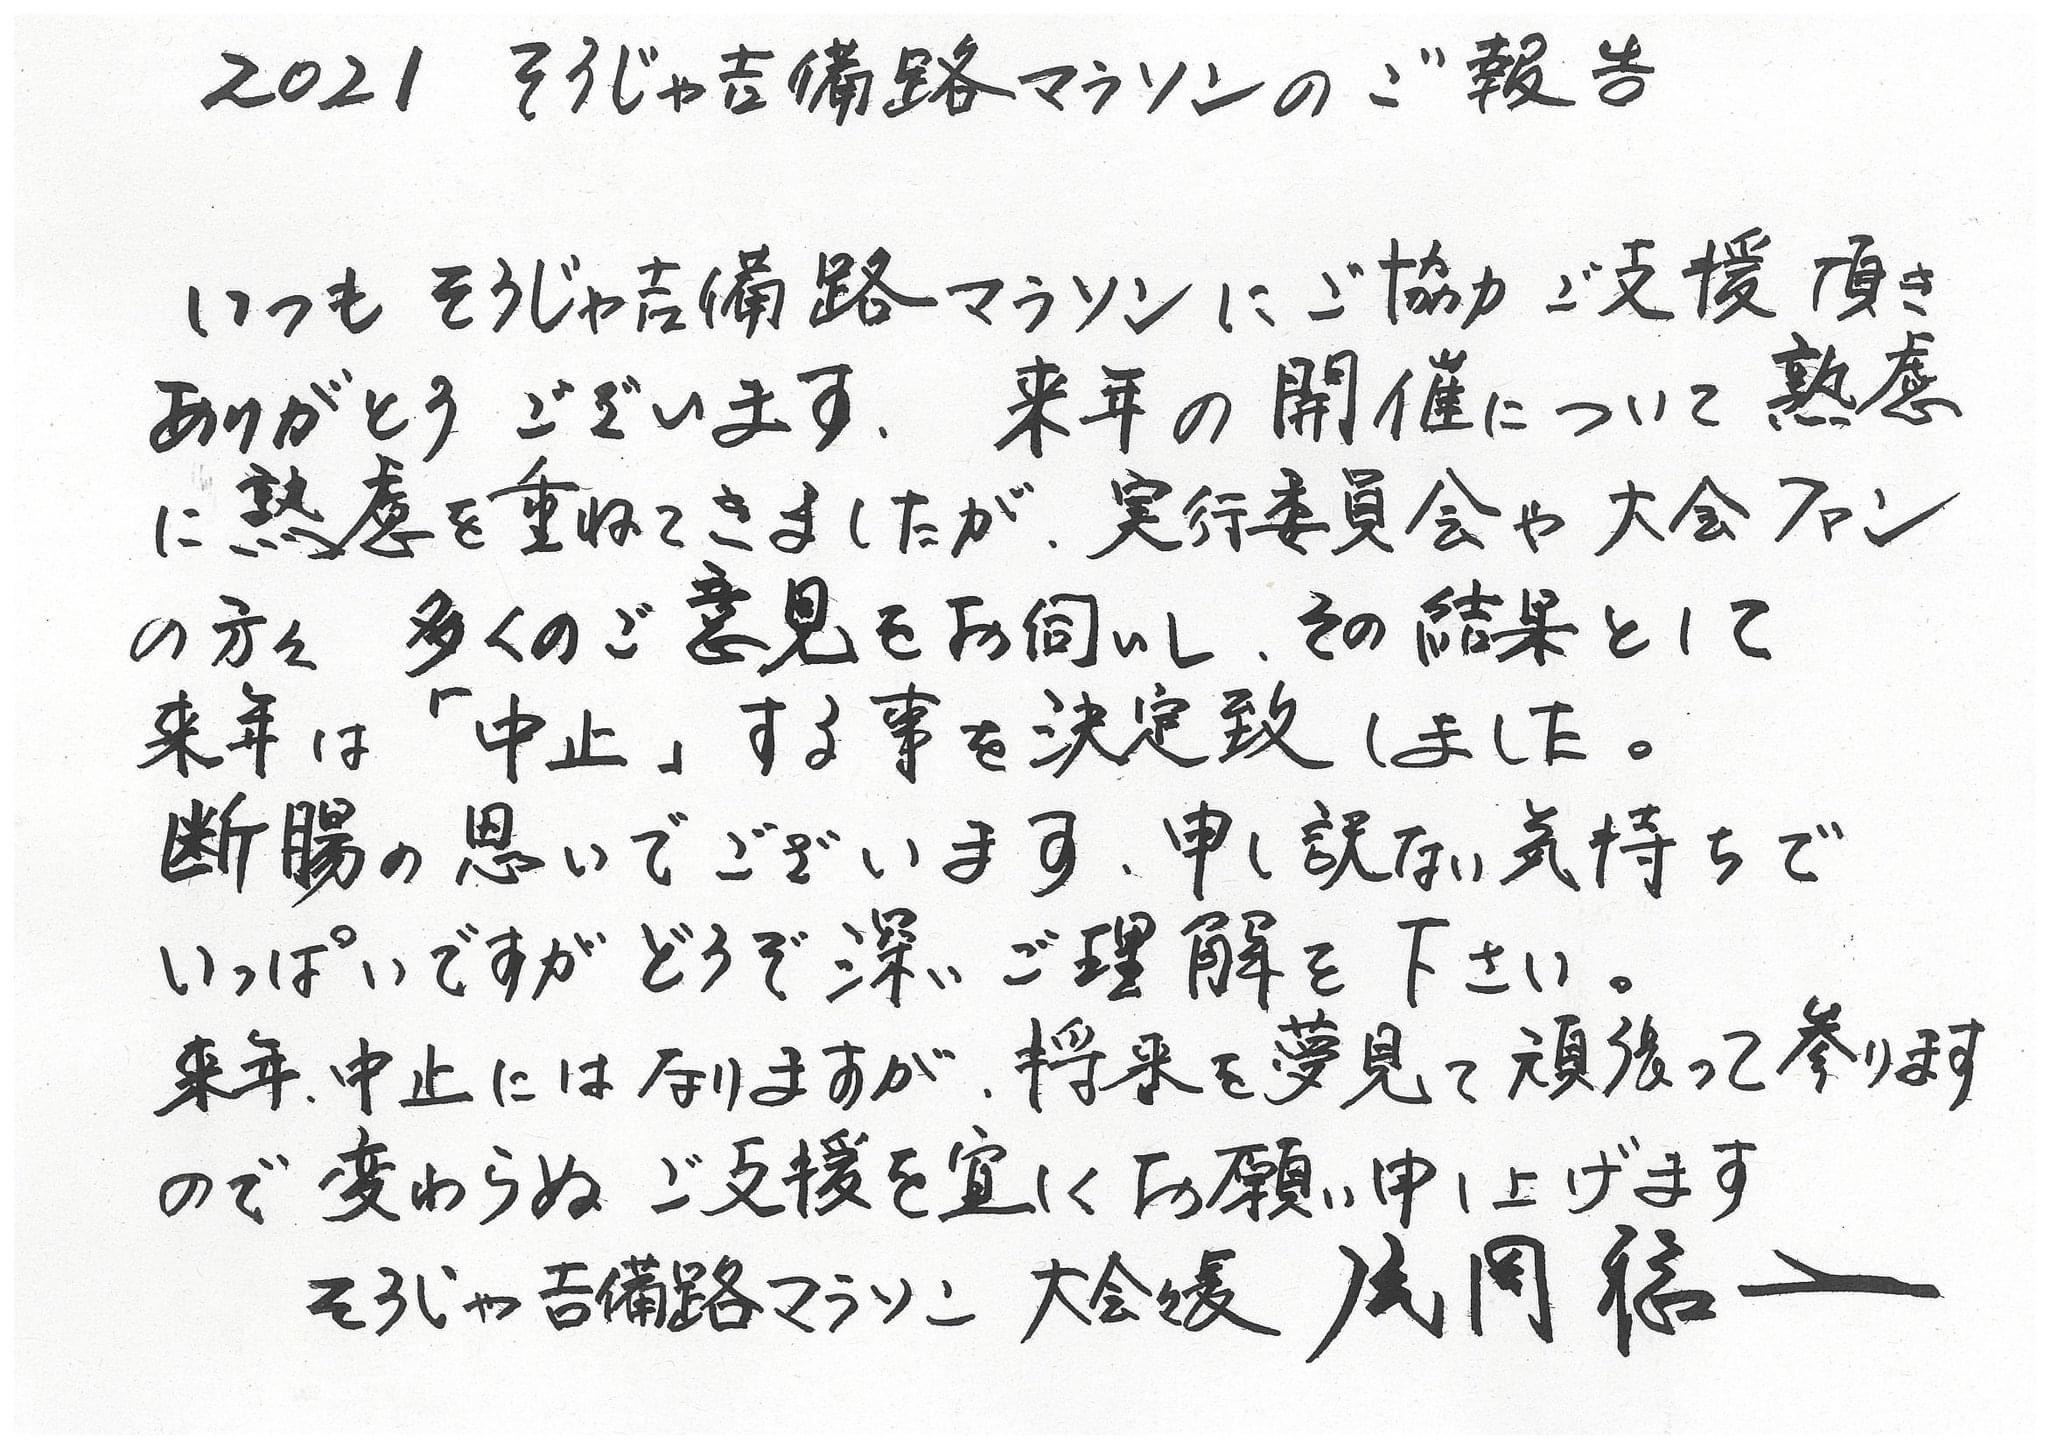 2021 そうじゃ吉備路マラソンのご報告
いつもそうじゃ吉備路マラソンにご協力ご支援頂き
ありがとうございます、来年の開催について熟慮
に熟慮を重ねてきましたが、実行委員会や大会ファン
の方々 多くのご意見をお伺いし、その結果として
来年は「中止」する事を決定致しました。
断腸の思いでございます、申し訳ない気持ちで
いっぱいですがどうぞ深いご理解を下さい。
来年、中止にはなりますが、将来を夢見て頑張って参ります
ので変わらぬご支援を宜しくお願い申し上げます
そうじゃ吉備路マラソン 大会々長 片岡聡一